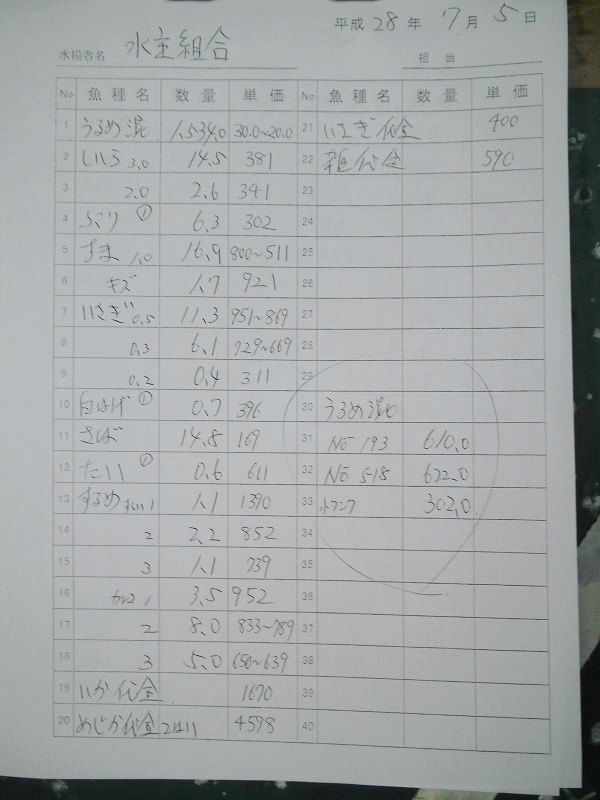 平成 28 年 7 月 5 日
水揚者名 水主組合 担当
No 魚種名 数量 単価 No 魚種名 数量 単価
1 うるめ混 1,534.0 30.0~20.0 21 いさぎ代金 400
2 しいら 3.0 14.5 381 22 雑代金 590
3 2.0 2.6 341 23
4 ぶり ① 6.3 302 24
5 すま 1.0 16.9 800~511 25
6 キズ 1.7 921 26
7 いさぎ 0.5 11.3 951~869 27
8 0.3 6.1 729~669 28
9 0.2 0.4 311 29
10 白はげ ① 0.7 396 30 うるめ混
11 さば 14.8 169 31 No 193 610.0
12 たい ① 0.6 611 32 No 518 622.0
13 するめ 1 1.1 1390 33 トランク 302.0
14 2 2.2 852 34
15 3 1.1 739 35
16 1 3.5 952 36
17 2 8.0 833~789 37
18 3 5.0 650~639 38
19 いか代金 1670 39
20 めじか代金 4598 40